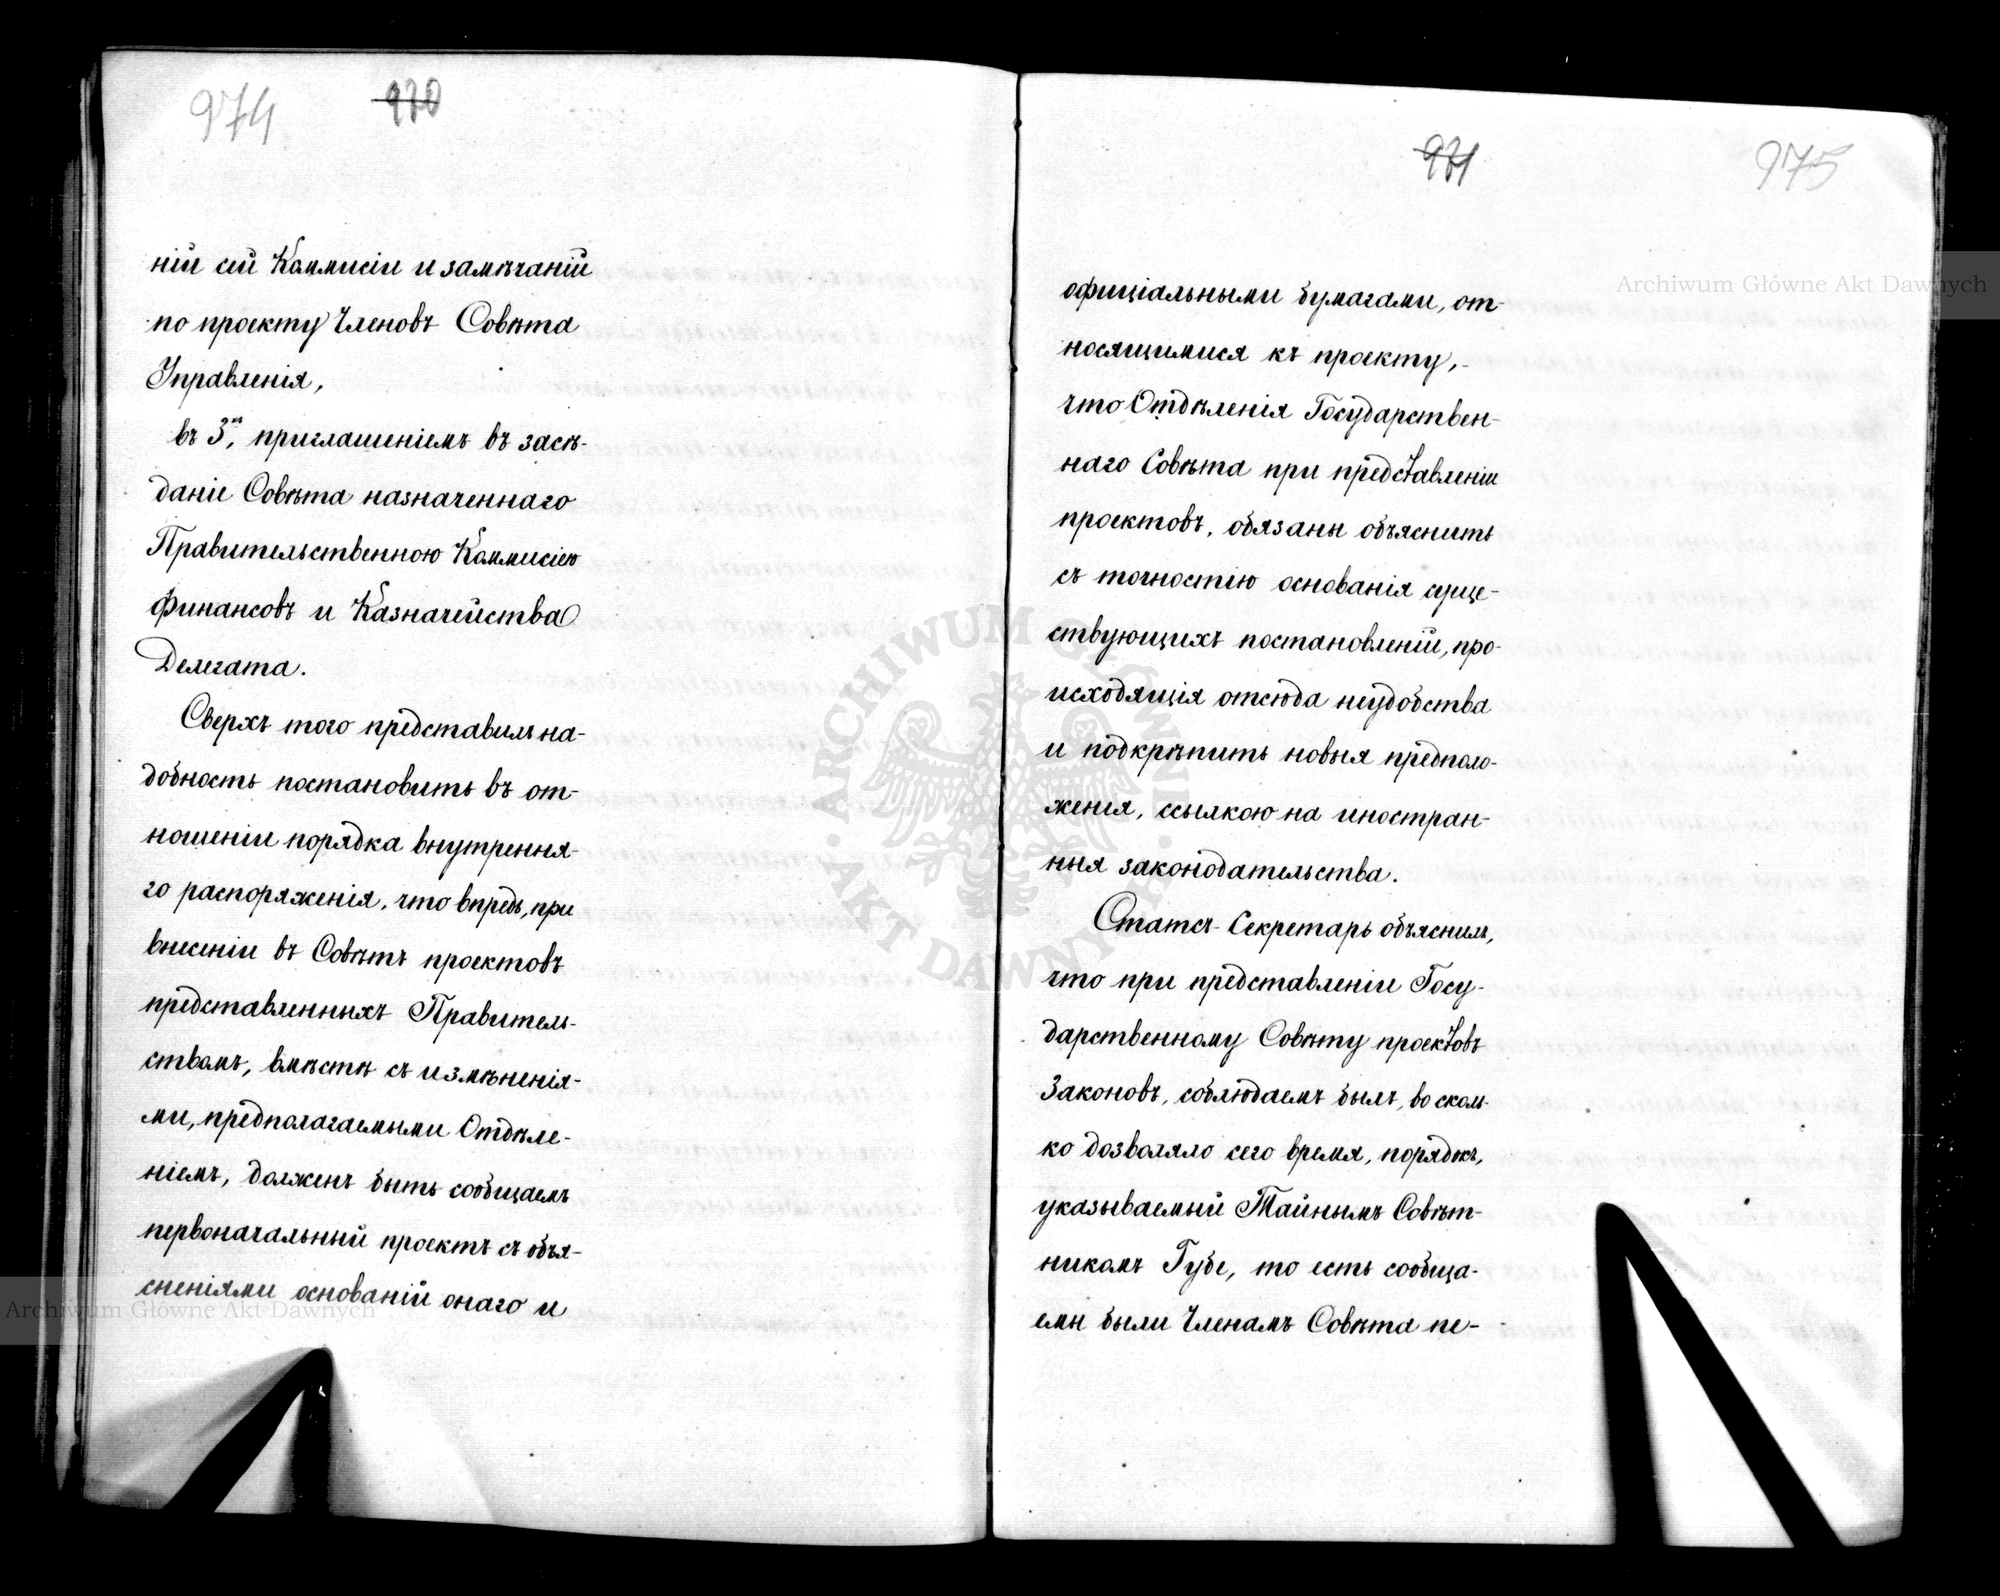 974 970
ній сей Коммисіи и замѣчаній
по проекту Членовъ Совѣта
Управленія,
въ 3.хъ, приглашеніемъ въ засѣ-
даніе Совѣта назначеннаго
Правительственною Коммисіею
Финансовъ и Казначейства
Делегата.
Сверхъ того представилъ на-
добность постановить въ от-
ношеніи порядка внутрення-
го распоряженія, что впредь, при
внесеніи въ Совѣтъ проектовъ
представленныхъ Правитель-
ствомъ, вмѣстѣ съ измѣненія-
ми, предполагаемыми Отдѣле-
ніемъ, долженъ быть сообщаемъ
первоначальный проектъ съ объя-
сненіями основаній онаго и
971 975
официальными бумагами, от-
носящимися къ проекту,-
что Отдѣленія Государствен-
наго Совѣта при представленіи
проектовъ, обязаны объяснить
съ точностію основанія суще-
ствующихъ постановленій, про-
исходящія отсюда неудобства
и подкрѣпить новыя предполо-
женія, ссылкою на иностран-
ныя законодательства.
Статсъ-Секретарь объяснилъ,
что при представленіи Госу-
дарственному Совѣту проектовъ
Законовъ, соблюдаемъ былъ, во сколь-
ко дозволяло сего время, порядокъ,
указываемый Тайнымъ Совѣт-
никомъ Губе, то есть сообща-
емы были Членамъ Совѣта пе-
Archiwum Główne Akt Dawnych
Archiwum Główne Akt Dawnych
ARCHIWUM GŁÓWNE · AKT DAWNYCH ·